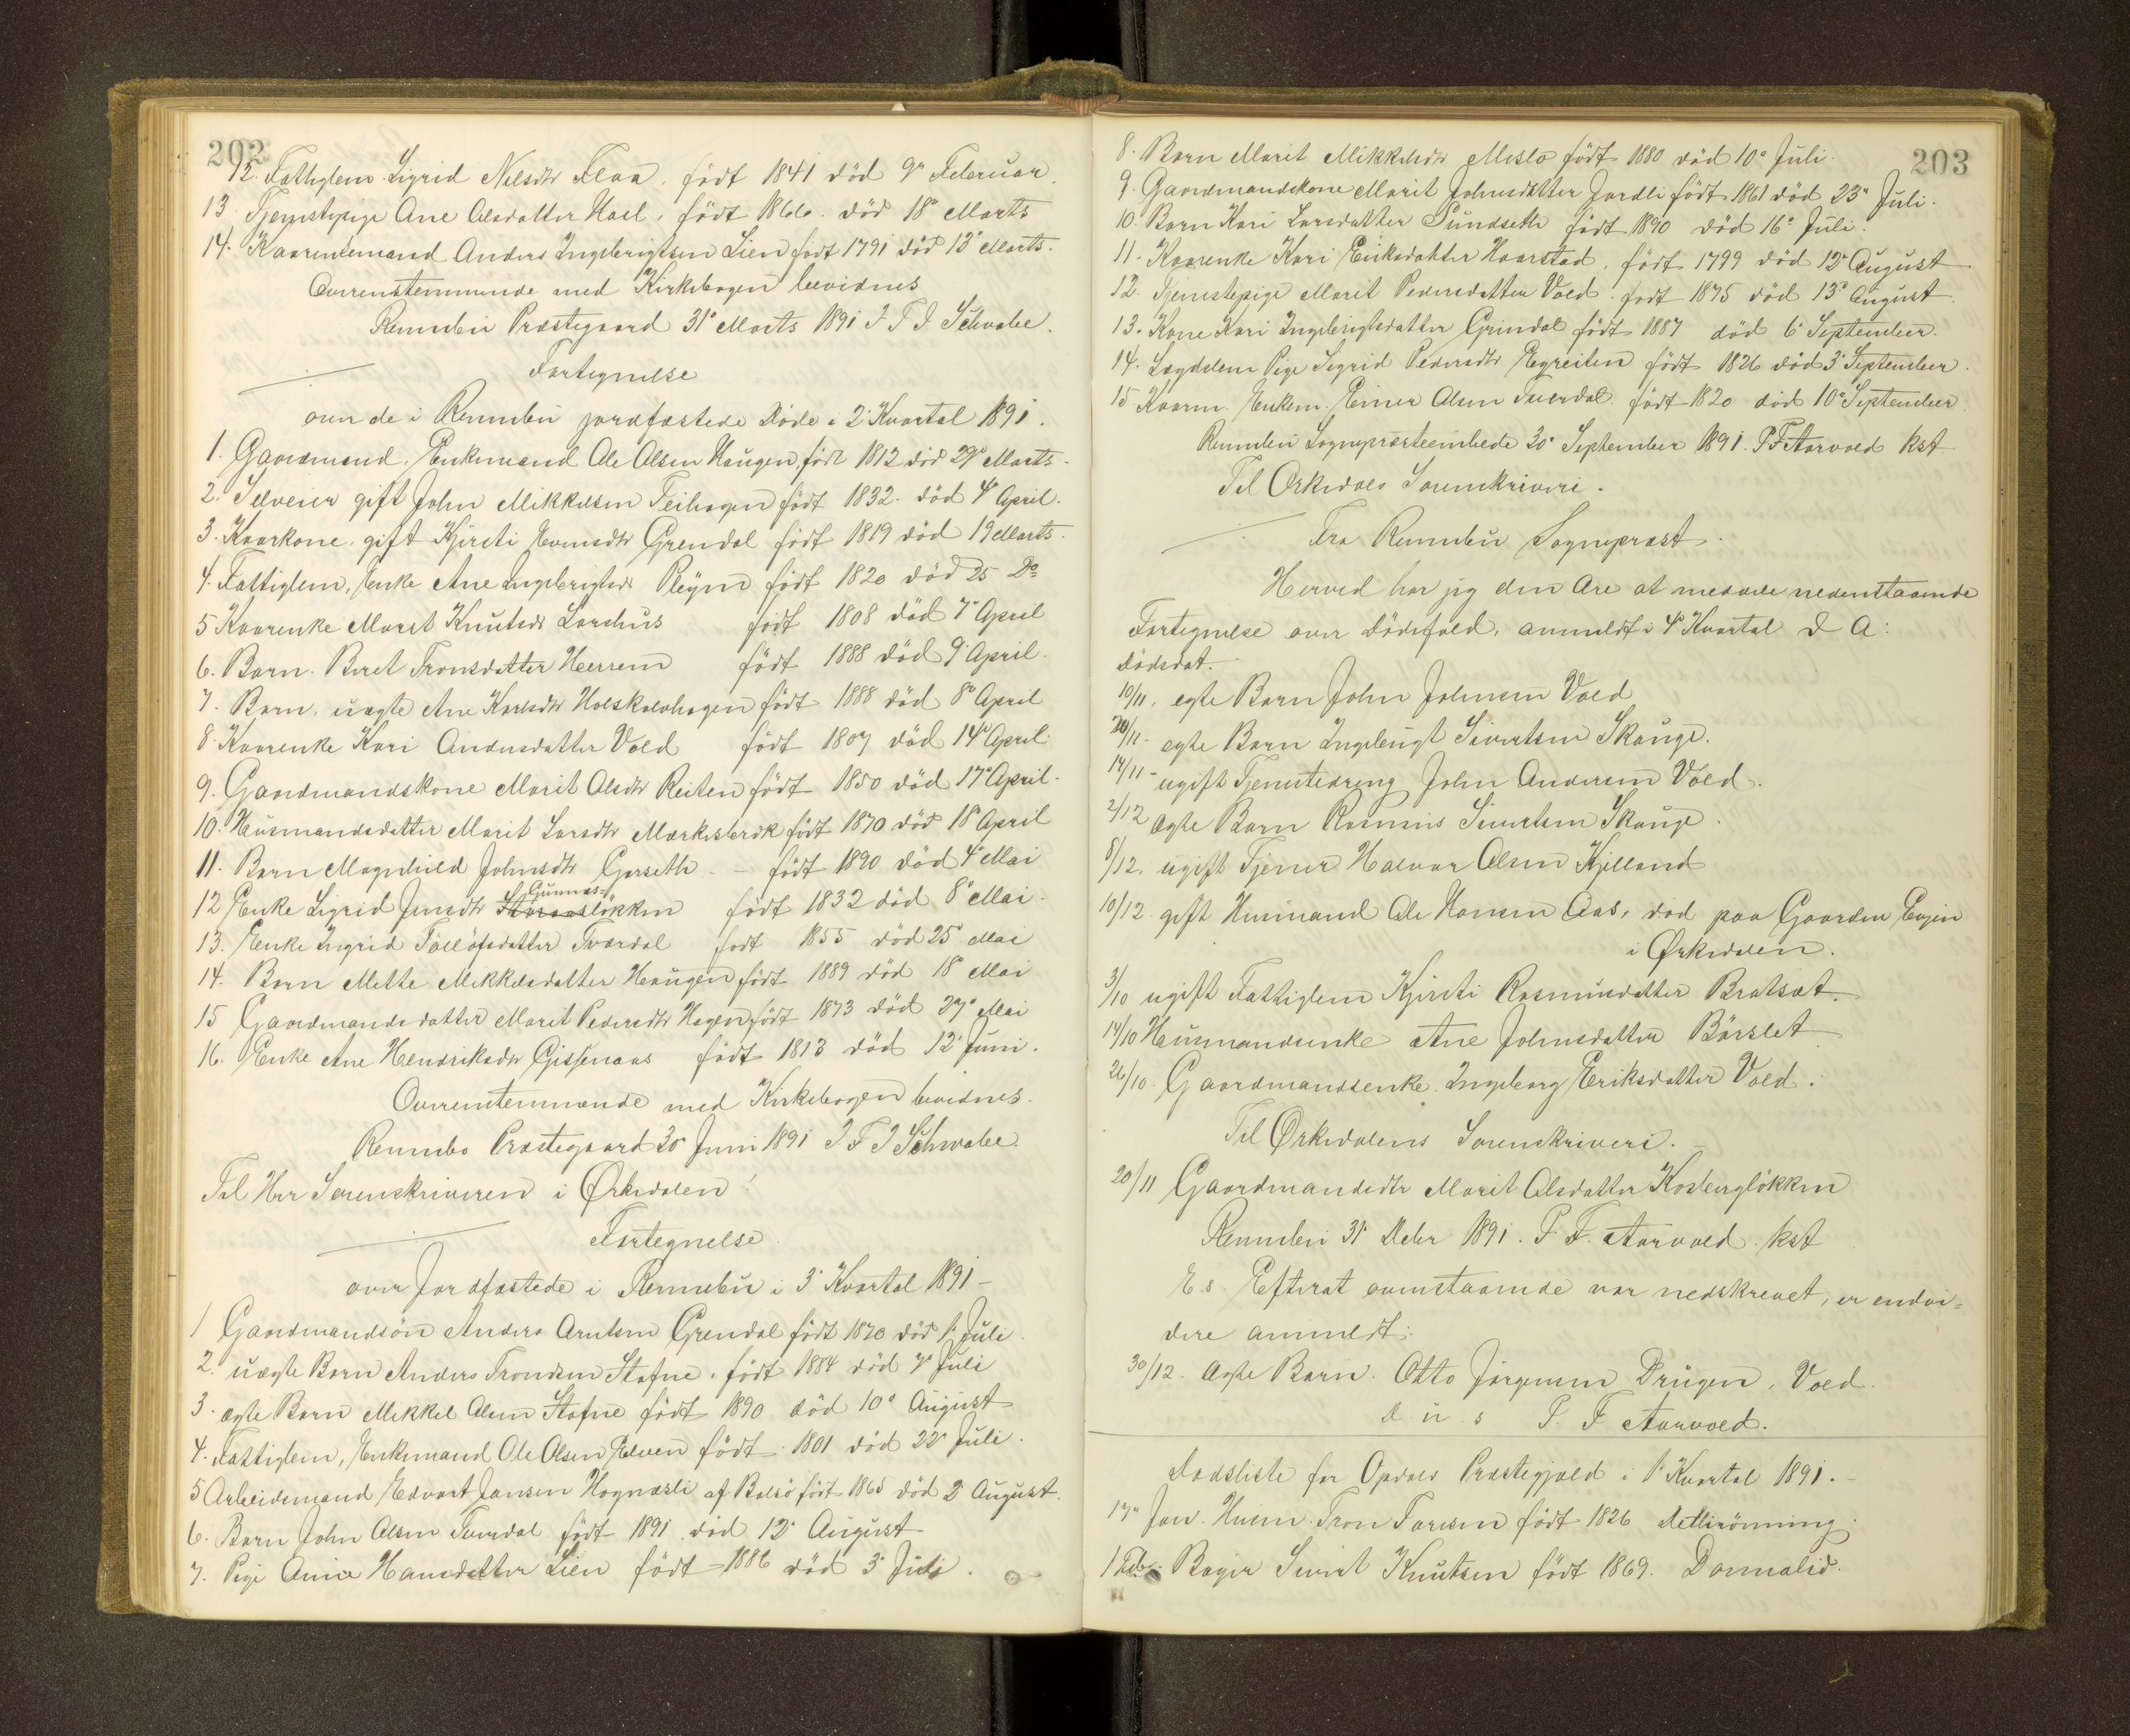 202
12. Fattiglem Sigrid Nilsdtr Flaa, født 1841 død 9de Februar.
13. Tjenestepige Ane Olsdatter Hoel, født 1866. død 18de Marts
14. Kaarenkemand Anders Ingebrigtsen Lien født 1791 død 13de Marts.
Overenstemmende med Kirkebogen bevidnes
Rennebu Præstegaard 31te Marts 1891 J F J Schwabe.
Fortegnelse
over de i Rennebu jordfæstede Døde i 2det Kvartal 1891.
1. Gaardmand. Enkemand Ole Olsen Haugen, født 1812 død 29de Marts.
2. Selveier gift John Mikkelsen Feihagen født 1832. død 4de April.
3. Kaarkone. gift Kjirsti Evensdtr Grendal født 1819 død 19 Marts.
4. Fattiglem, Enke Ane Ingebrigtsdr Pleym født 1820 død 25 Do
5 Kaarenke Marit Knutsdr Larshus født 1808 død 7de April
6. Barn. Beret Tronsdatter Heerem født 1888 død 9de April.
7. Barn. uægte Ane Karlsdtr Halskalvhagen født 1888 død 8de April
8. Kaarenke Kari Andersdatter Vold født 1807 død 14de April.
9. Gaardmandskone Marit Olsdtr Reiten født 1850 død 17de April.
10. Husmandsdatter Marit Larsdtr Mærkesbæk født 1870 død 18de April
11. Barn Magnhild Johnsdtr Gorseth - - født 1890 død 4de Mai
12 Enke Sigrid Jensdtr Gunnesløkken født 1832 død 8de Mai.
13. Enke Ingrid Tollofsdatter Tværdal født 1855 død 25de Mai
14. Barn Mette Mikkelsdatter Haugen født 1889 død 18de Mai
15 Gaardmandsdatter Marit Pedersdtr Hagen født 1873 død 27de Mai
16. Enke Ane Hendriksdtr Gissenaas født 1813 død 12te Juni.
Overenstemmende med Kirkebogen bevidnes.
Rennebo Præstegaard 30te Juni 1891 J F J Schwabe.
Til Hrr Sorenskriveren i Ørkedalen!
Fortegnelse
over Jordfæstede i Rennebu i 3die Kvartal 1891 -
1 Gaardmandsøn Anders Arntsen Grendal født 1870 død 1ste Juli.
2. uægte Barn Anders Trondsen Stafne. født 1884 død 7de Juli
3. ægte Barn Mikkel Olsen Stafne født 1890 død 10de August
4. Fattiglem, Enkemand Ole Olsen Elven født 1801 død 22de Juli.
5 Arbeidsmand Edvart Jansen Hognæsli af Bolsø født 1865 død 2 August.
6. Barn John Olsen Tverdal født 1891 død 12te August
7. Pige Anne Hansdatter Lien født 1886 død 3die Juli.
203
8. Barn Marit Mikkelsdtr Meslo født 1880 død 10de Juli.
9. Gaardmandskone Marit Johnsdatter Jordli født 1861 død 23de Juli.
10. Barn Kari Larsdatter Sundseth født 1890 død 16de Juli.
11. Kaarenke Kari Eriksdatter Haarstad, født 1799 død 12te August
12. Tjenestepige Marit Pedersdatter Vold født 1875 død 13de August
13. Kone Kari Ingebrigtsdatter Grindal født 1887 død 6te September.
14. Lægdslem Pige Sigrid Pedersdtr Egreiten født 1826 død 3die September.
15 Kaarm. Enkem. Einer Olsen Tverdal født 1820 død 10de September
Rennebu Sognepræsteembede 30te September 1891. P. F. Aarvold kst
Til Orkedals Sorenskriveri.
Fra Rennebu Sognepræst.
Herved har jeg den Ære at meddele nedenstaaende
Fortegnelse over Dødsfald, anmeldt i 4de Kvartal D A:
Dødsdat.
10/11. egte Barn John Johnsen Vold
20/11. egte Barn Ingebrigt Sivertsen Skauge.
14/11 - ugift Tjenestedreng John Andersen Vold.
2/12 Ægte Barn Rasmus Sivertsen Skauge.
8/12. ugift Tjener Halvor Olsen Kjelland
10/12 gift Husmand Ole Hansen Aas, død paa Gaarden Evjen
i Ørkedalen.
3/10 ugift Fattiglem Kjirsti Rasmusdatter Bratsæt.
14/10 Husmandsenke Ane Johnsdatter Børslet
26/10. Gaardmandsenke. Ingeborg Eriksdatter Vold.
Til Ørkedalens Sorenskriveri.
20/11 Gaardmandsdtr Marit Olsdatter Kosbergløkken
Rennebu 31te Debr 1891. P. F. Aarvold. kst
E.s. Efterat ovenstaaende var nedskrevet, er endvi=
dere anmeldt:
30/12. Ægte Barn. Otto Jørgensen Drugen, Vold.
d. u. s P. F Aarvold.
Dødsliste for Opdals Præstegjeld i 1ste Kvartal 1891. -
17de Jan. Husm. Tron Toresen født 1826 Detlirønning.
1 Feb. Bager Sivert Knutsen født 1869. Donnalid.